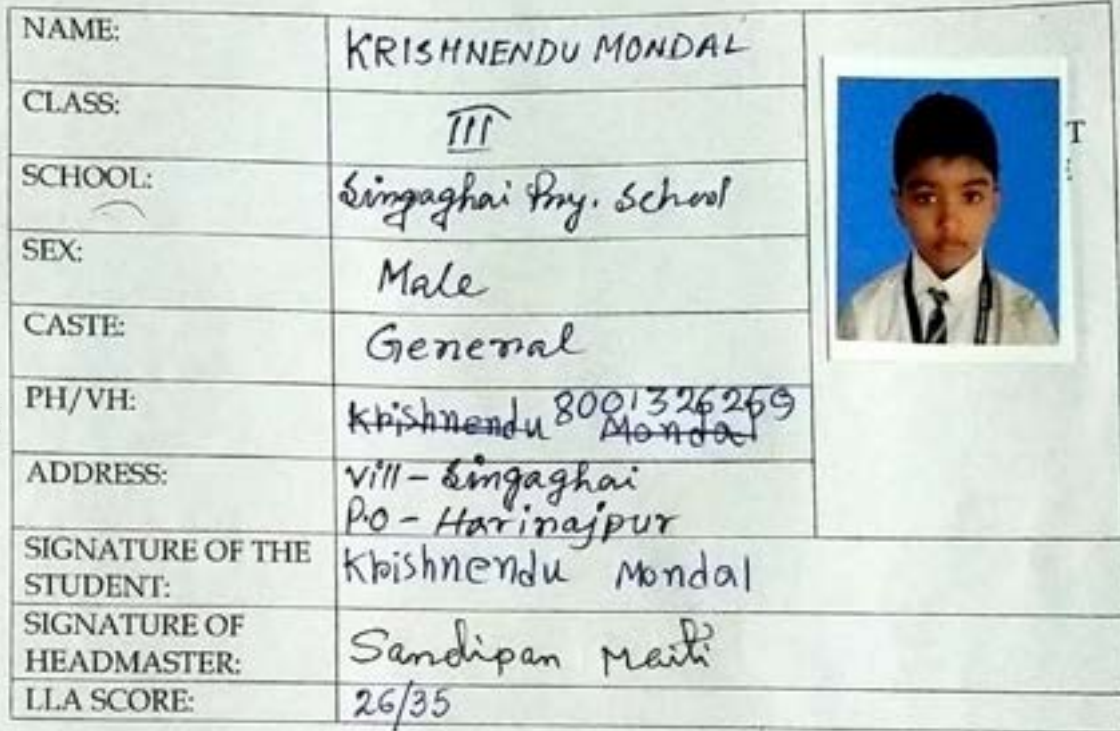 NAME: KRISHNENDU MONDAL
CLASS: III
SCHOOL: Singaghai Pry. School
SEX: Male
CASTE: General
PH/VH: Krishnendu 8001326259 Mondal
ADDRESS: Vill - Singaghai
P.O - Harirajpur
SIGNATURE OF THE
STUDENT: Krishnendu Mondal
SIGNATURE OF
HEADMASTER: Sandipan Maiti
LLA SCORE: 26/35
T